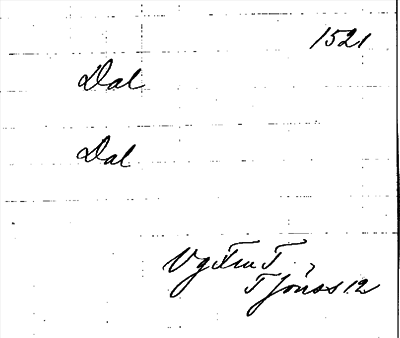 1521
Dal
Dal
Vg Fru T.
T Jönss 12